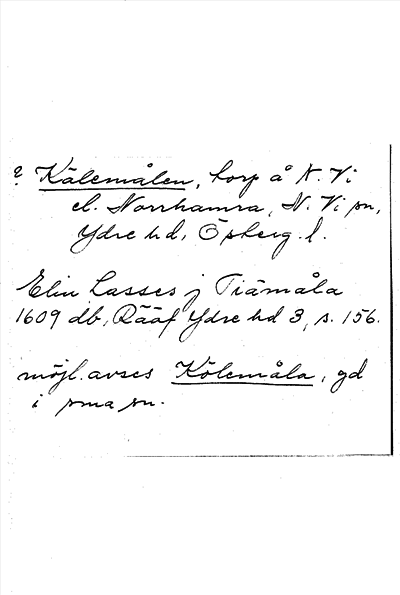 ? Kälemålen, torp å N. Vi
el. Norrhamra, N. Vi sn,
Ydre hd, Öpberg. l.
Elin Lasses j Tiämåla
1609 db, Rääf Ydre hd 3, s. 156.
möjl. avses Kölemåla, gd
i sma sn.